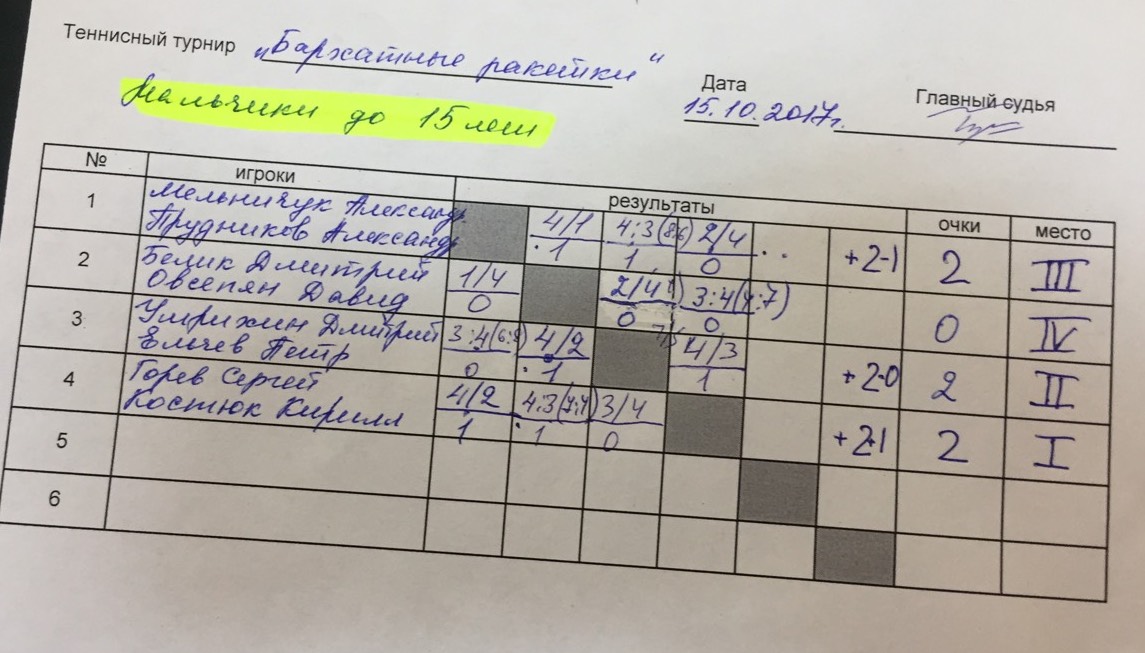 Теннисный турнир „Бархатные ракетки“
Дата
Главный судья
Мальчики до 15 лет
15.10.2017г.
№ игроки результаты очки место
1 Мельничук Александр 4/1 4:3(8:6) 2/4 +2-1 2 III
Прудников Александр 1 1 0
2 Белик Дмитрий 1/4 2/4 3:4(4:7) 0 IV
Овсепян Давид 0 0 0
3 Умрихин Дмитрий 3:4(6:8) 4/2 4/3 +2-0 2 II
Елычев Петр 0 1 1
4 Горев Сергей 4/2 4:3(7:4) 3/4 +2+1 2 I
Костюк Кирилл 1 1 0
5
6